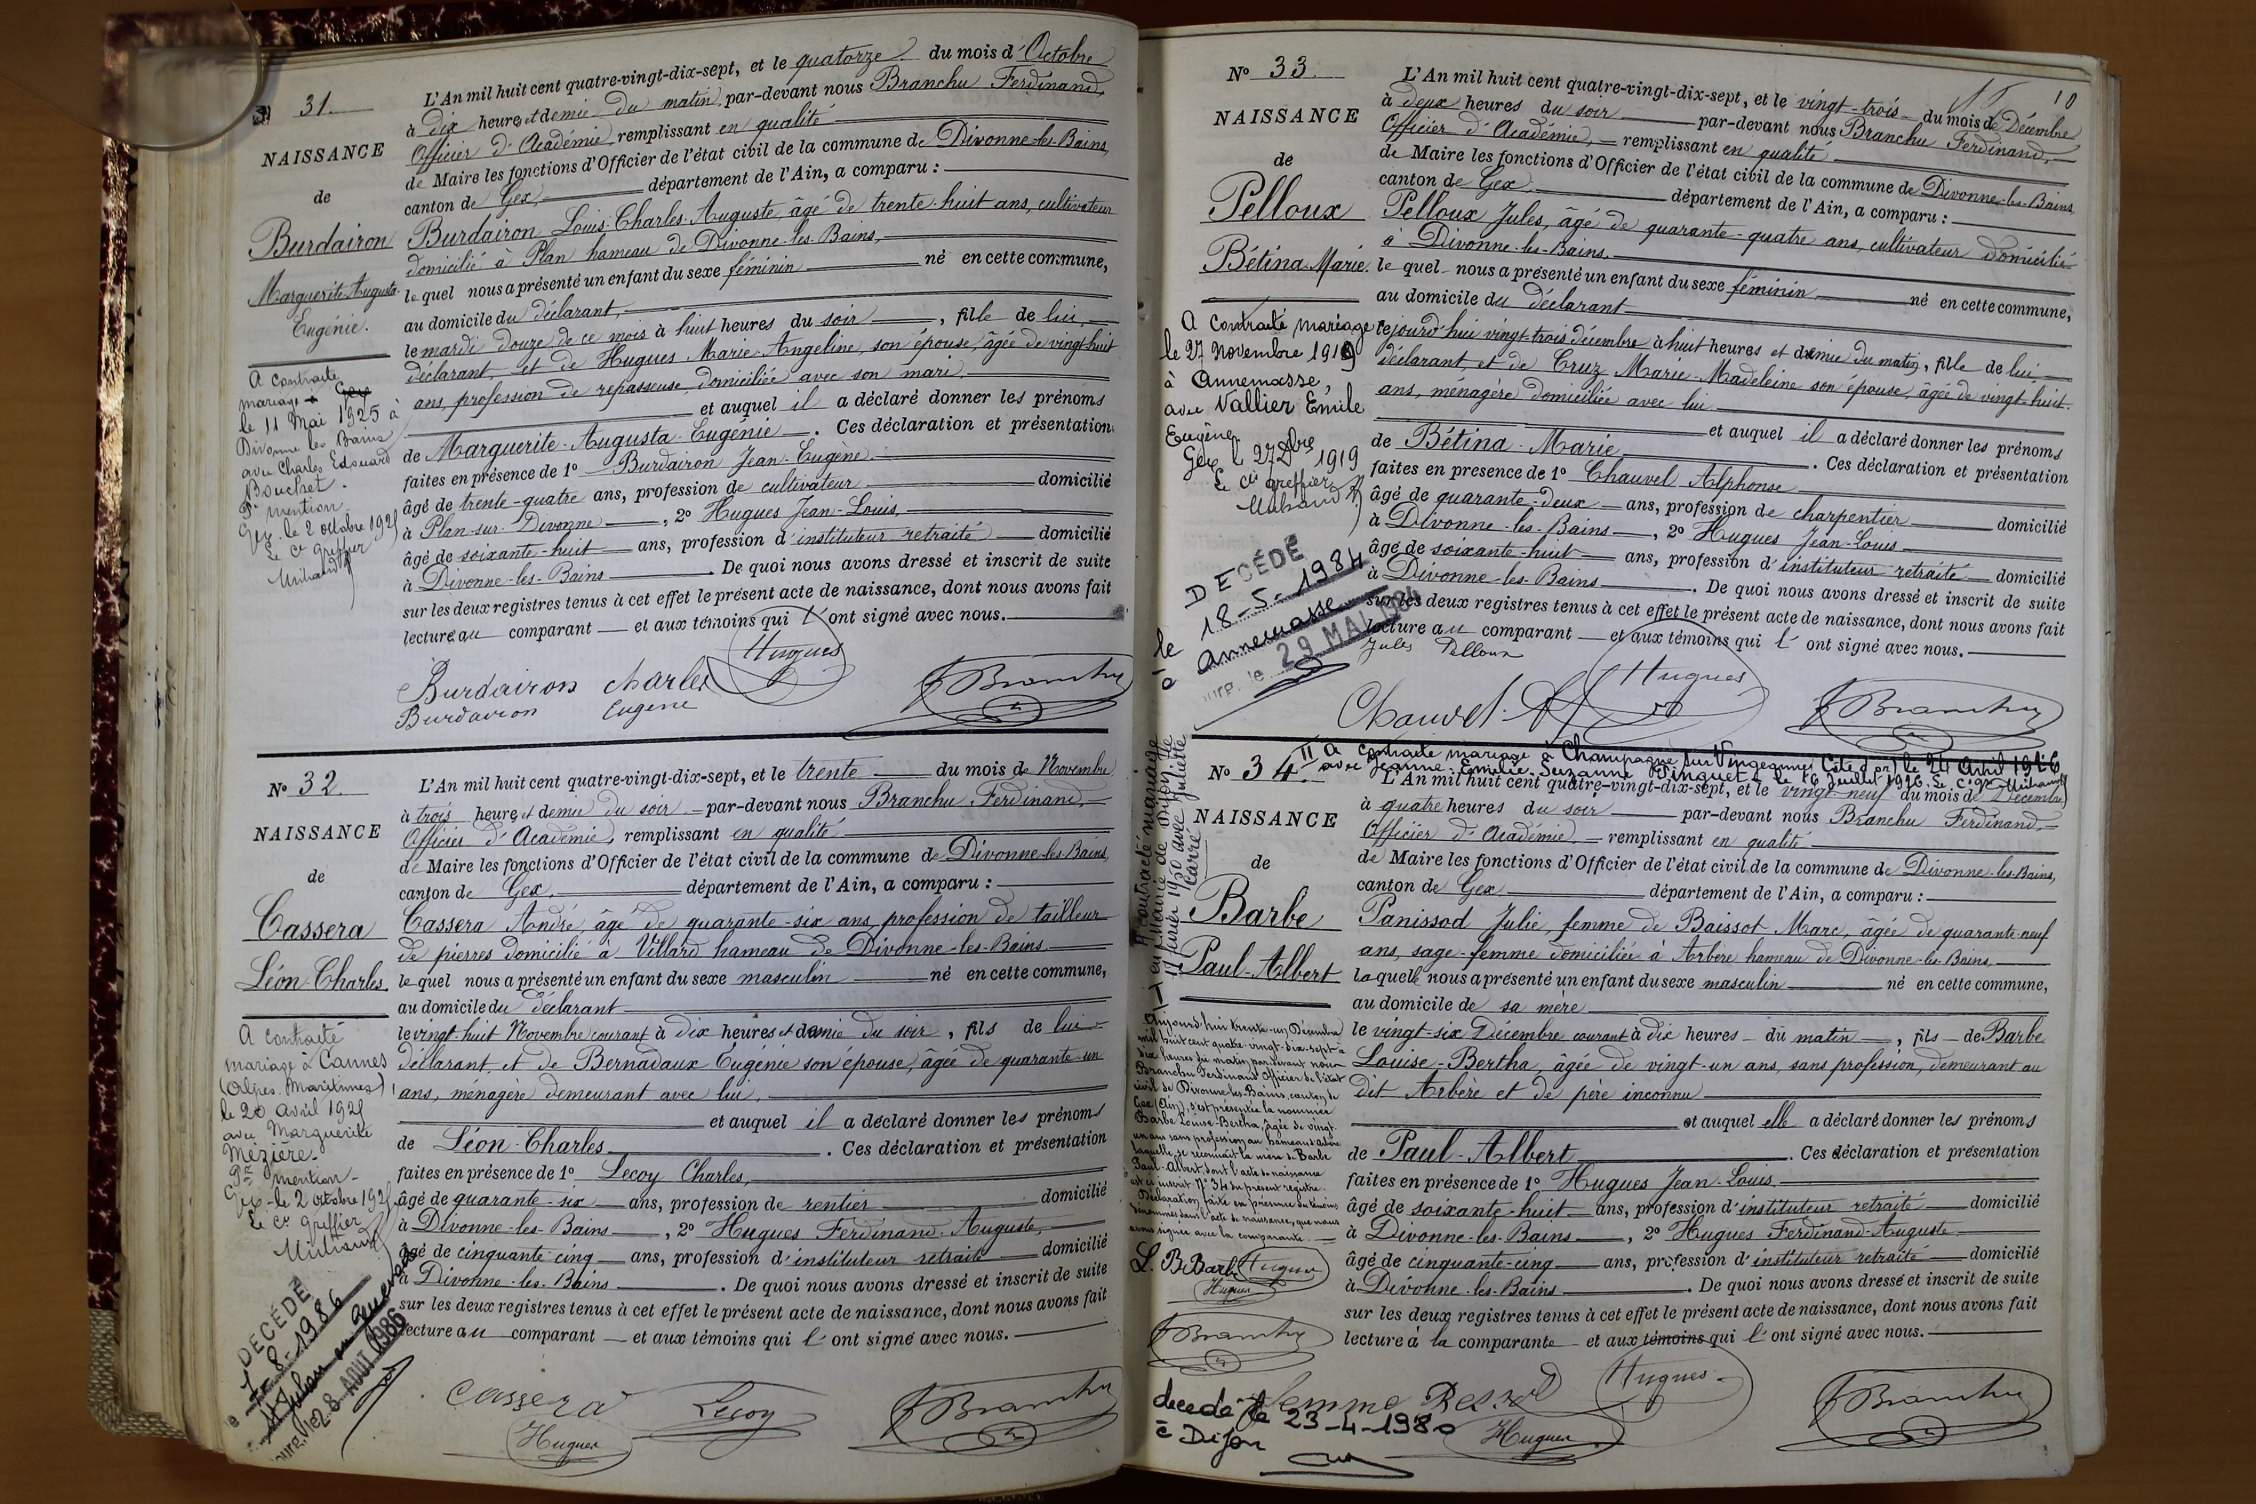 31.
NAISSANCE
de
Burdairon
Marguerite-Augusta-
Eugénie.
A contracté
mariage à Gex
le 11 Mai 1925 à
Divonne les Bains
avec Charles Edouard
Bouchet.
Pr mention
Gex le 2 octobre 192
Le cis greffier
L'An mil huit cent quatre-vingt-dix-sept, et le quatorze du mois d'Octobre
à dix heures et demie du matin, par-devant nous Branchu Ferdinand,
Officier d'Académie, remplissant en qualité
de Maire les fonctions d'Officier de l'état civil de la commune de Divonne-les-Bains,
canton de Gex, département de l'Ain, a comparu :
Burdairon Louis-Charles-Auguste, âgé de trente-huit ans, cultivateur
domicilié à Plan hameau de Divonne-les-Bains,
le quel nous a présenté un enfant du sexe féminin né en cette commune,
au domicile du déclarant,
le mardi douze de ce mois à huit heures du soir, fille de lui,
déclarant, et de Hugues Marie-Angeline, son épouse, âgée de vingt-huit
ans, profession de repasseuse, domiciliée avec son mari,
et auquel il a déclaré donner les prénoms
de Marguerite-Augusta-Eugénie. Ces déclaration et présentation
faites en présence de 1º Burdairon Jean-Eugène.
âgé de trente-quatre ans, profession de cultivateur domicilié
à Plan-sur-Divonne, 2º Hugues Jean-Louis,
âgé de soixante-huit ans, profession d'instituteur retraité domicilié
à Divonne-les-Bains. De quoi nous avons dressé et inscrit de suite
sur les deux registres tenus à cet effet le présent acte de naissance, dont nous avons fait
lecture au comparant et aux témoins qui l'ont signé avec nous.
Burdairon Charles Hugues Branchu
Burdairon Eugène
Nº 32.
NAISSANCE
de
Cassera
Léon-Charles.
A contracté
mariage à Cannes
(Alpes Maritimes)
le 20 avril 192
avec Marguerite
Mézière.
Pr mention
Gex le 2 octobre 192
Le cis greffier
DECÉDÉ
8-1986
St Julien en genevois
28 AOUT 1986
L'An mil huit cent quatre-vingt-dix-sept, et le trente du mois de Novembre
à trois heures et demie du soir par-devant nous Branchu Ferdinand,
Officier d'Académie, remplissant en qualité
de Maire les fonctions d'Officier de l'état civil de la commune de Divonne-les-Bains,
canton de Gex, département de l'Ain, a comparu :
Cassera André, âgé de quarante-six ans, profession de tailleur
de pierres domicilié à Villard hameau de Divonne-les-Bains
le quel nous a présenté un enfant du sexe masculin né en cette commune,
au domicile du déclarant
le vingt-huit Novembre courant à dix heures et demie du soir, fils de lui
déclarant, et de Bernadaux Eugénie son épouse, âgée de quarante-un
ans, ménagère demeurant avec lui,
et auquel il a déclaré donner les prénoms
de Léon-Charles. Ces déclaration et présentation
faites en présence de 1º Lecoy Charles,
âgé de quarante-six ans, profession de rentier domicilié
à Divonne-les-Bains, 2º Hugues Ferdinand-Auguste,
âgé de cinquante-cinq ans, profession d'instituteur retraité domicilié
à Divonne-les-Bains. De quoi nous avons dressé et inscrit de suite
sur les deux registres tenus à cet effet le présent acte de naissance, dont nous avons fait
lecture au comparant et aux témoins qui l'ont signé avec nous.
Cassera Lecoy Branchu
Hugues
10
Nº 33.
NAISSANCE
de
Pelloux
Bétina-Marie.
A contracté mariage
le 27 novembre 1919
à Annemasse,
avec Vallier Émile
Eugène.
Gex le 27 Xbre 1919
Le cis greffier
DECÉDÉ
le 18-5-1984
à Annemasse
Bourg, le 29 MAI 1984
L'An mil huit cent quatre-vingt-dix-sept, et le vingt-trois du mois de Décembre
à deux heures du soir par-devant nous Branchu Ferdinand,
Officier d'Académie, remplissant en qualité
de Maire les fonctions d'Officier de l'état civil de la commune de Divonne-les-Bains
canton de Gex, département de l'Ain, a comparu :
Pelloux Jules, âgé de quarante-quatre ans, cultivateur domicilié
à Divonne-les-Bains.
le quel nous a présenté un enfant du sexe féminin né en cette commune,
au domicile du déclarant
cejourd'hui vingt-trois décembre à huit heures et demie du matin, fille de lui
déclarant, et de Cruz Marie-Madeleine son épouse, âgée de vingt-huit
ans, ménagère domiciliée avec lui
et auquel il a déclaré donner les prénoms
de Bétina-Marie. Ces déclaration et présentation
faites en présence de 1º Chauvel Alphonse
âgé de quarante-deux ans, profession de charpentier domicilié
à Divonne-les-Bains, 2º Hugues Jean-Louis
âgé de soixante-huit ans, profession d'instituteur retraité domicilié
à Divonne-les-Bains. De quoi nous avons dressé et inscrit de suite
sur les deux registres tenus à cet effet le présent acte de naissance, dont nous avons fait
lecture au comparant et aux témoins qui l'ont signé avec nous.
Jules Pelloux Hugues
Chauvel. A Branchu
II A contracté mariage à Champagne sur Vingeanne (Côte d'or) le 24 avril 1926
avec Jeanne-Emélie-Suzanne le 16 Juillet 1926. Le cis gr
Nº 34.
NAISSANCE
de
Barbe
Paul-Albert
A contracté mariage
en mairie de Dijon le
17 février 1950 avec Juliette
Carré
Aujourd'hui trente-un Décembre
mil huit cent quatre-vingt-dix-sept à
dix heures du matin, par devant nous
Branchu Ferdinand Officier de l'état
civil de Divonne-les-Bains, canton de
Gex (Ain), s'est présentée la nommée
Barbe Louise-Bertha, âgée de vingt-
un ans sans profession, au hameau d'Arbère
laquelle se reconnaît la mère de Barbe
Paul-Albert dont l'acte de naissance
est inscrit Nº 34 du présent registre.
Déclaration faite en présence des témoins
dénommés dans l'acte de naissance, que nous
avons signée avec la comparante.
L. B Barbe Hugues
Hugues
Branchu
decedé le 23-4-1980
à Dijon
L'An mil huit cent quatre-vingt-dix-sept, et le vingt-neuf du mois de Décembre
à quatre heures du soir par-devant nous Branchu Ferdinand,
Officier d'Académie, remplissant en qualité
de Maire les fonctions d'Officier de l'état civil de la commune de Divonne-les-Bains,
canton de Gex département de l'Ain, a comparu :
Panissod Julie, femme de Baissot Marc, âgée de quarante-neuf
ans, sage-femme domiciliée à Arbère hameau de Divonne-les-Bains
laquelle nous a présenté un enfant du sexe masculin né en cette commune,
au domicile de sa mère
le vingt-six Décembre courant à dix heures du matin, fils de Barbe
Louise-Bertha, âgée de vingt-un ans, sans profession, demeurant au
dit Arbère et de père inconnu
et auquel elle a déclaré donner les prénoms
de Paul-Albert. Ces déclaration et présentation
faites en présence de 1º Hugues Jean-Louis,
âgé de soixante-huit ans, profession d'instituteur retraité domicilié
à Divonne-les-Bains, 2º Hugues Ferdinand-Auguste
âgé de cinquante-cinq ans, profession d'instituteur retraité domicilié
à Divonne-les-Bains. De quoi nous avons dressé et inscrit de suite
sur les deux registres tenus à cet effet le présent acte de naissance, dont nous avons fait
lecture à la comparante et aux témoins qui l'ont signé avec nous.
femme Hugues Branchu
Hugues